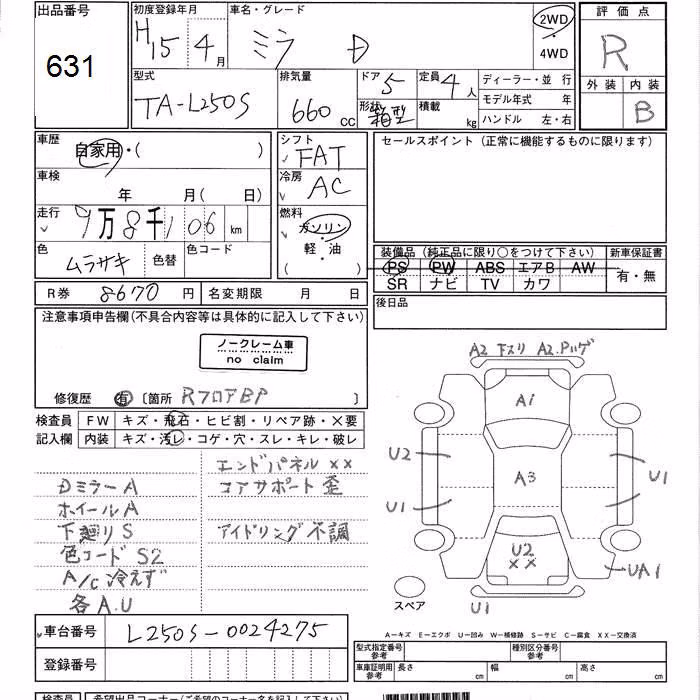 出品番号
631
初度登録年月
H15年4月
車名・グレード
ミラ D
2WD
4WD
評価点
R
外装 内装
B
型式
TA-L250S
排気量
660 cc
ドア 5
形状 箱型
定員 4人
積載 kg
ディーラー・並行
モデル年式 年
ハンドル 左・右
車歴
自家用・( )
車検
年 月(日)
走行
9万8千106 km
色
ムラサキ
色替
色コード
シフト
FAT
冷房
AC
燃料
ガソリン
軽・油
( )
セールスポイント(正常に機能するものに限ります)
装備品(純正品に限り○をつけて下さい)
PS PW ABS エアB AW
SR ナビ TV カワ
新車保証書
有・無
R券 8670円
名変期限 月 日
後日品
注意事項申告欄(不具合内容等は具体的に記入して下さい)
ノークレーム車
no claim
修復歴 有 〔箇所 RフロアBP 〕
検査員
記入欄
FW キズ・飛石・ヒビ割・リペア跡・X要
内装 キズ・汚レ・コゲ・穴・スレ・キレ・破レ
エンドパネル XX
DミラーA
コアサポート歪
ホイールA
下廻りS
アイドリング不調
色コードS2
A/C冷えず
各A.U
A2 下スリ A2.Pハゲ
A1
U2
A3
U1
U1
U2
XX
UA1
U1
スペア
車台番号
L250S-0024275
登録番号
A－キズ E－エクボ U－凹み W－補修跡 S－サビ C－腐食 XX－交換済
型式指定番号
参考
種別区分番号
参考
車庫証明用
参考
長さ cm
幅 cm
高さ cm
検査員
希望出品コーナー(ご希望のコーナー名を記入して下さい)